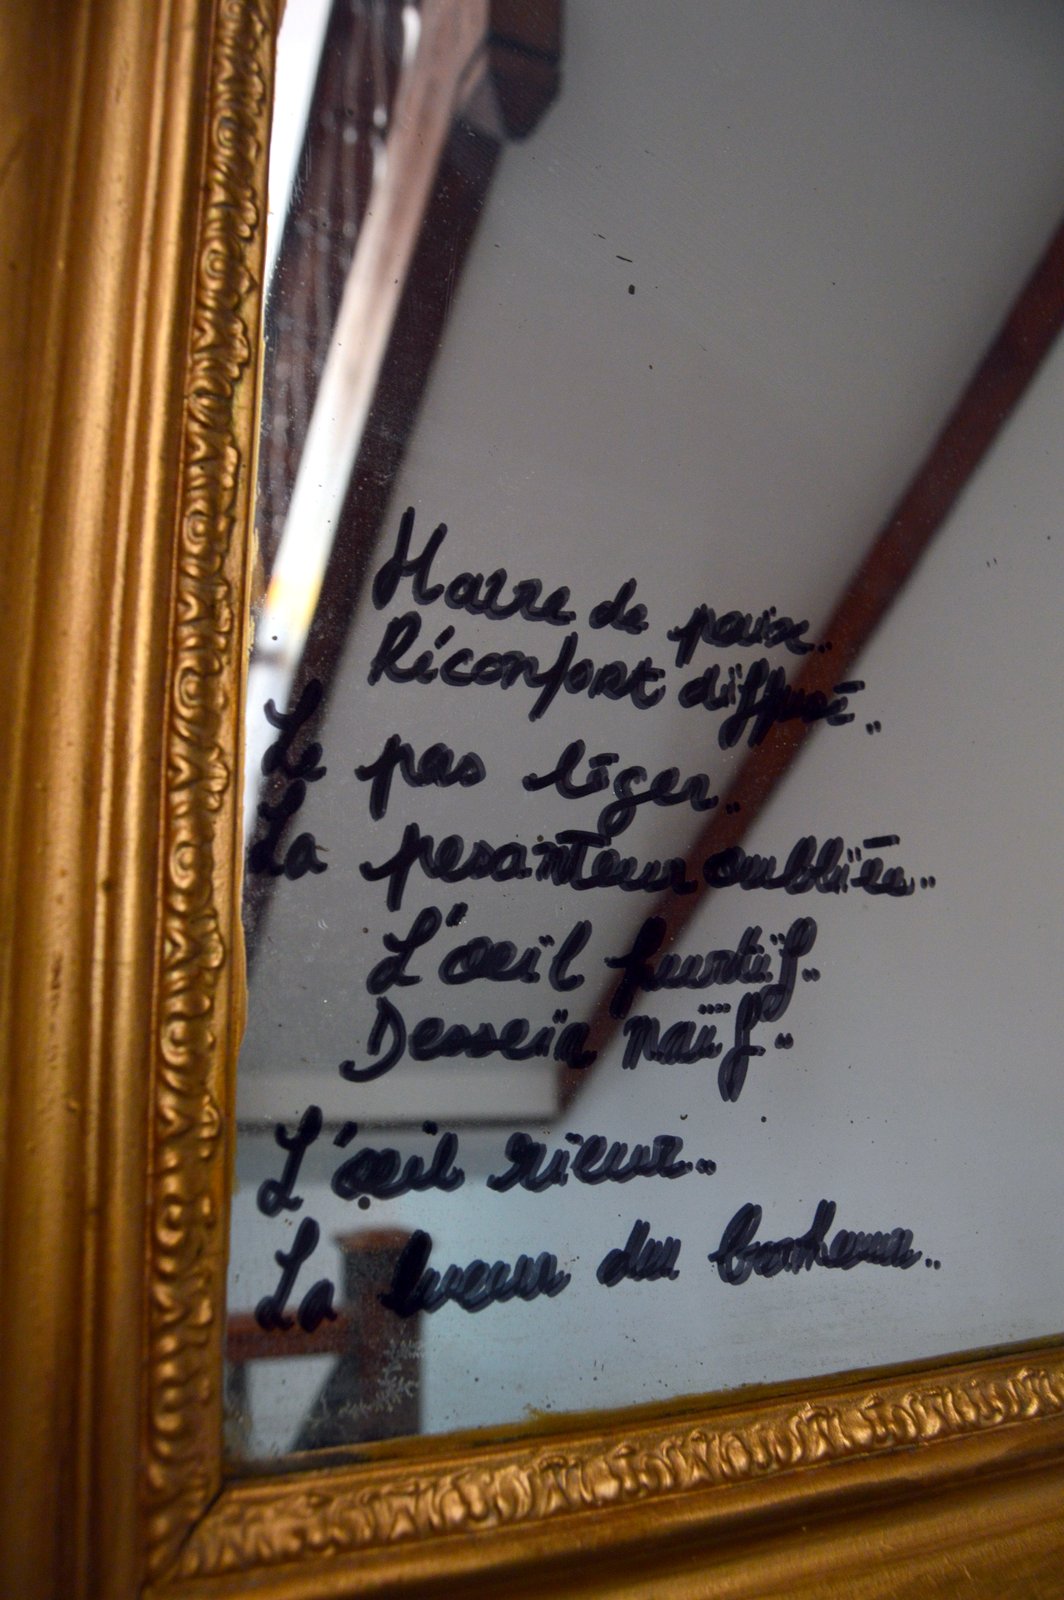 Havre de paix..
Réconfort diffusé..
Le pas léger..
La pesanteur oubliée..
L'œil furtif..
Dessein naïf..
L'œil rieur..
La lueur du bonheur..